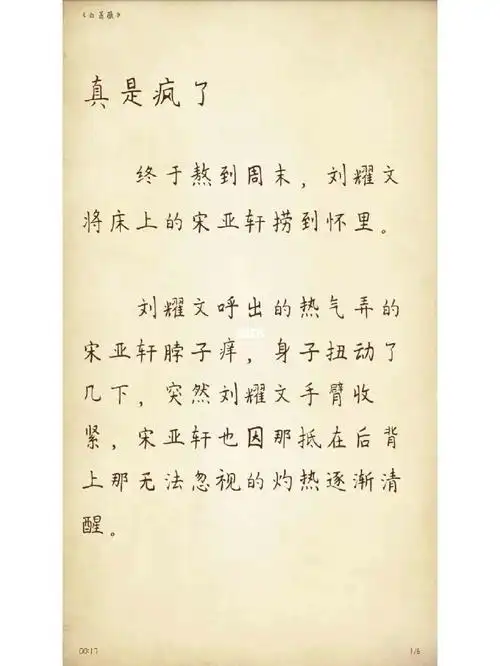 《白蔷薇》
真是疯了
终于熬到周末，刘耀文
将床上的宋亚轩捞到怀里。
刘耀文呼出的热气弄的
宋亚轩脖子痒，身子扭动了
几下，突然刘耀文手臂收
紧，宋亚轩也因那抵在后背
上那无法忽视的灼热逐渐清
醒。
00:17
1/6